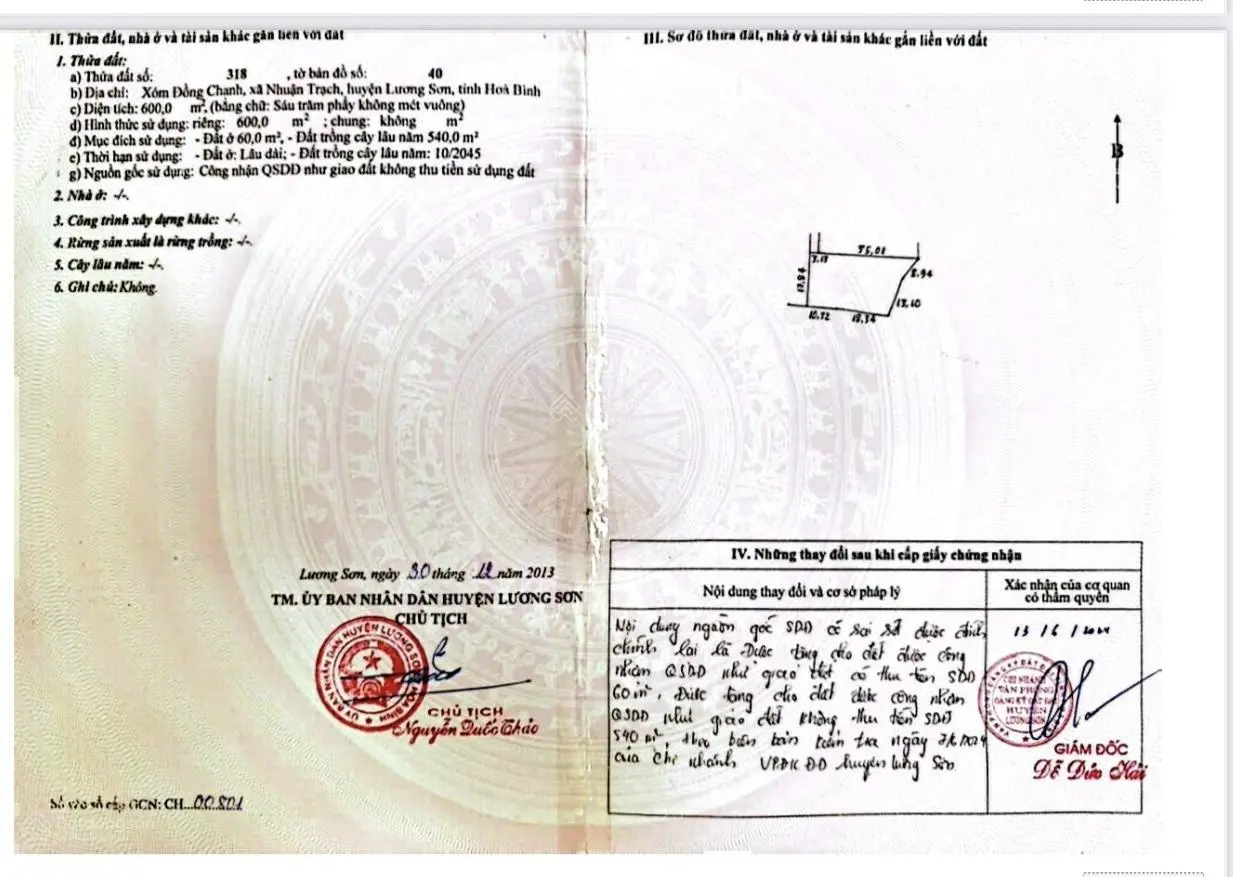 II. Thửa đất, nhà ở và tài sản khác gắn liền với đất
1. Thửa đất:
a) Thửa đất số: 318 , tờ bản đồ số: 40
b) Địa chỉ: Xóm Đồng Chanh, xã Nhuận Trạch, huyện Lương Sơn, tỉnh Hoà Bình
c) Diện tích: 600,0 m², (bằng chữ: Sáu trăm phẩy không mét vuông)
d) Hình thức sử dụng: riêng: 600,0 m² ; chung: không m²
đ) Mục đích sử dụng: - Đất ở 60,0 m², - Đất trồng cây lâu năm 540,0 m²
e) Thời hạn sử dụng: - Đất ở: Lâu dài; - Đất trồng cây lâu năm: 10/2045
g) Nguồn gốc sử dụng: Công nhận QSDĐ như giao đất không thu tiền sử dụng đất
2. Nhà ở: -/-.
3. Công trình xây dựng khác: -/-.
4. Rừng sản xuất là rừng trồng: -/-.
5. Cây lâu năm: -/-.
6. Ghi chú: Không.
Lương Sơn, ngày 30 tháng 12 năm 2013
TM. ỦY BAN NHÂN DÂN HUYỆN LƯƠNG SƠN
CHỦ TỊCH
CHỦ TỊCH
Nguyễn Quốc Thảo
Số vào sổ cấp GCN: CH...00801
III. Sơ đồ thửa đất, nhà ở và tài sản khác gắn liền với đất
B
8.94
13.10
10.72
IV. Những thay đổi sau khi cấp giấy chứng nhận
Nội dung thay đổi và cơ sở pháp lý
Xác nhận của cơ quan
có thẩm quyền
Nội dung nguồn gốc SDĐ có sai sót được đính
chính lại là Được tặng cho đất được công
nhận QSDĐ như giao đất có thu tiền SDĐ
60 m², Được tặng cho đất được công nhận
QSDĐ như giao đất không thu tiền SDĐ
540 m², theo biên bản kiểm tra ngày 7/6/2024
của Chi nhánh VPĐK ĐĐ huyện Lương Sơn
13/6/2024
CHI NHÁNH
VĂN PHÒNG
ĐĂNG KÝ ĐẤT ĐAI
HUYỆN
LƯƠNG SƠN
GIÁM ĐỐC